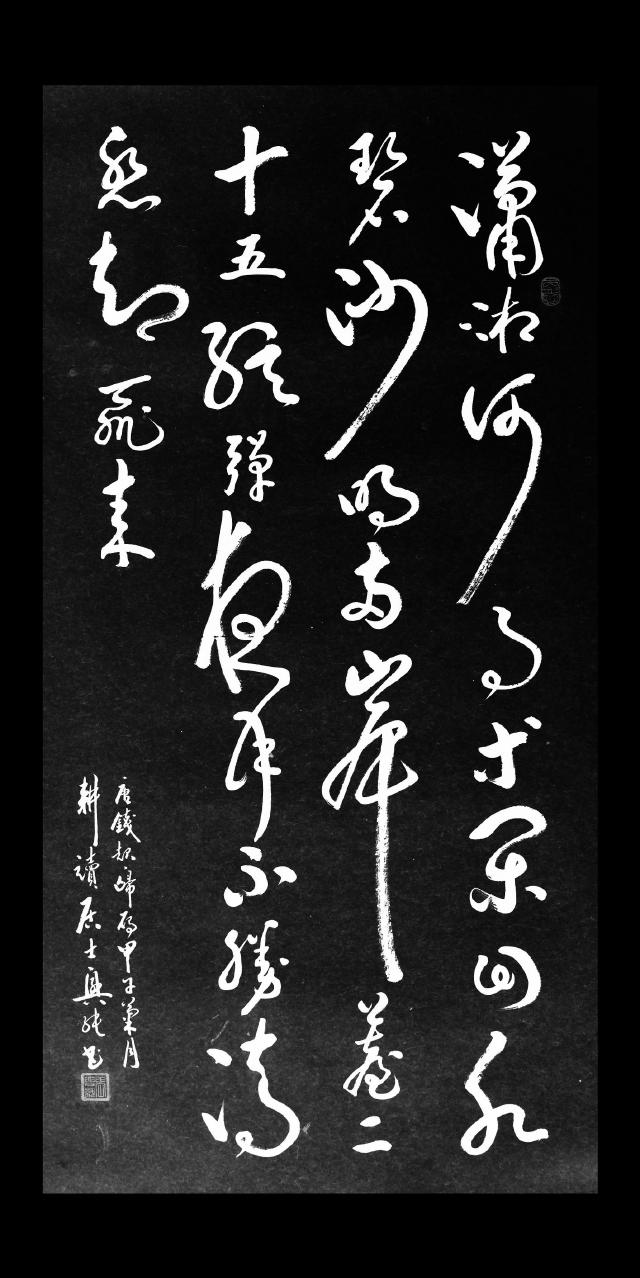 瀟湘何事等閒回水
碧沙明兩岸苔二
十五絃彈夜月不勝清
怨却飛來
唐錢起歸雁甲子菊月
耕讀居士興書